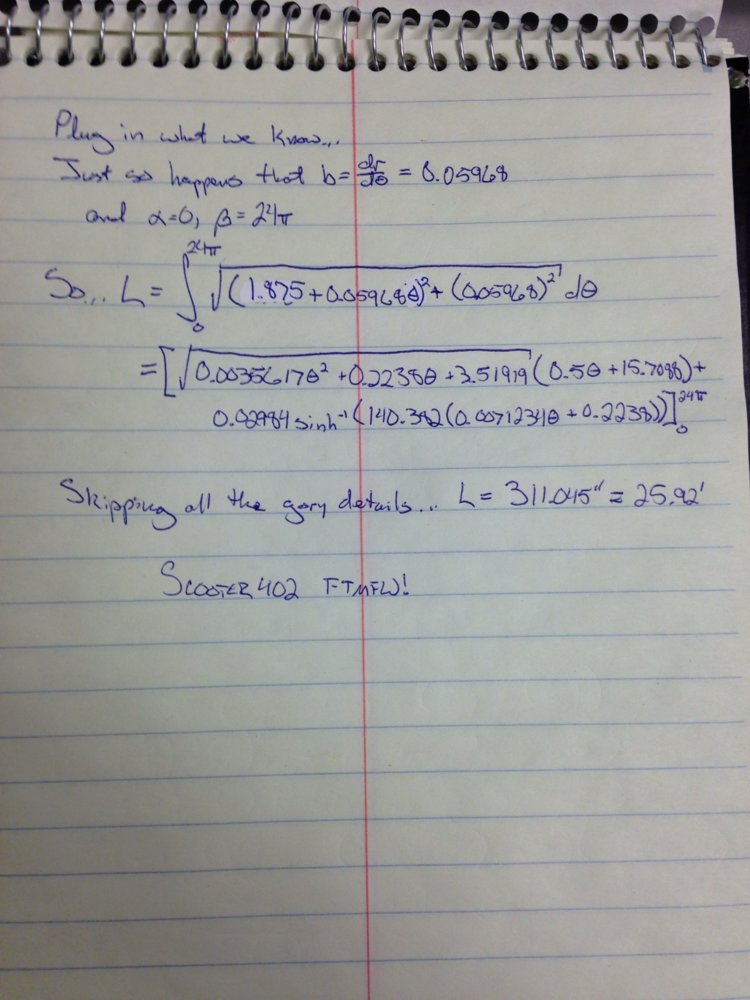 Plug in what we know...
Just so happens that b = dr/dθ = 0.05968
and α=0, β=24π
So... L = ∫₀²⁴π √((1.875+0.05968θ)²+(0.05968)²) dθ
= [√(0.0035617θ²+0.2238θ+3.51919) (0.5θ+15.7088)+
0.02984 sinh⁻¹(140.382(0.0071234θ+0.2238))]₀²⁴π
Skipping all the gory details... L = 311.045" = 25.92'
SCOOTER402 FTMFW!